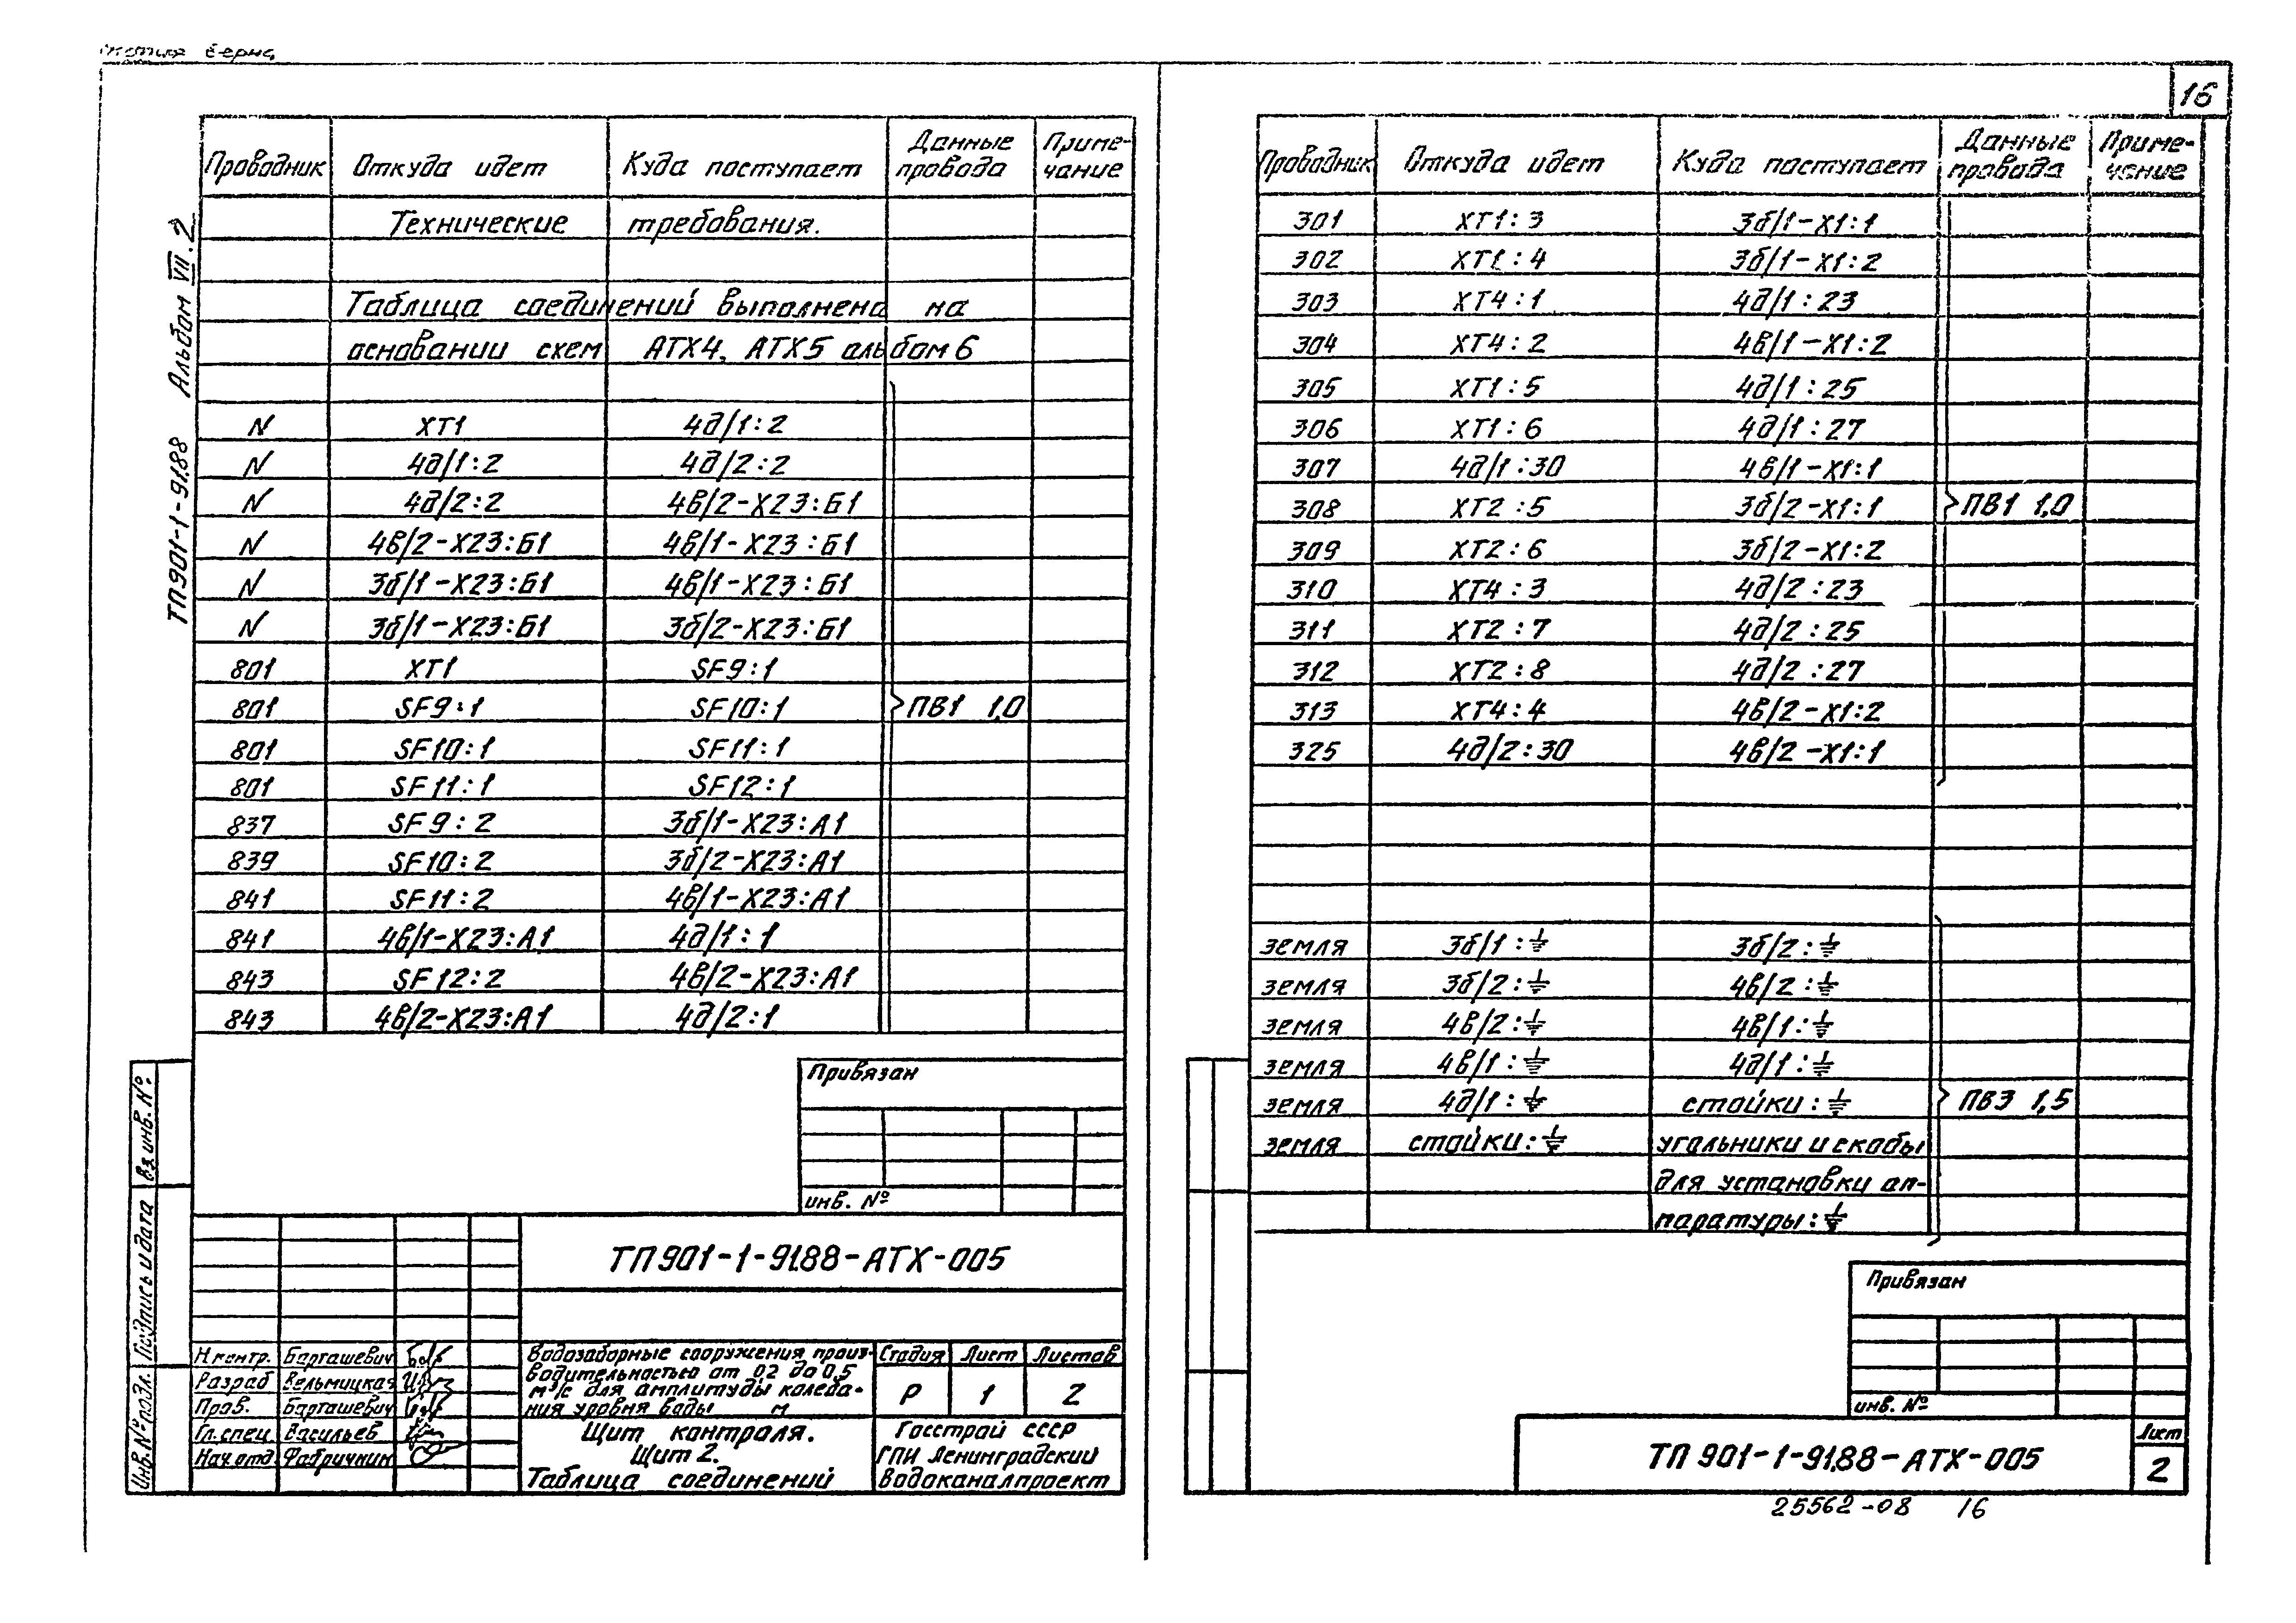 16
ТП901-1-91.88 Альбом VII.2
Проводник Откуда идет Куда поступает Данные провода Примечание
Технические требования.
Таблица соединений выполнена на
основании схем АТХ4, АТХ5 альбом 6
N ХТ1 4д/1:2
N 4д/1:2 4д/2:2
N 4д/2:2 4в/2-Х23:Б1
N 4в/2-Х23:Б1 4в/1-Х23:Б1
N 3б/1-Х23:Б1 4в/1-Х23:Б1
N 3б/1-Х23:Б1 3б/2-Х23:Б1
801 ХТ1 SF9:1
801 SF9:1 SF10:1 ПВ1 1,0
801 SF10:1 SF11:1
801 SF11:1 SF12:1
837 SF9:2 3б/1-Х23:А1
839 SF10:2 3б/2-Х23:А1
841 SF11:2 4в/1-Х23:А1
841 4в/1-Х23:А1 4д/1:1
843 SF12:2 4в/2-Х23:А1
843 4в/2-Х23:А1 4д/2:1
Привязан
инв. №
Инв. № подл. Подпись и дата Вз. инв. №
ТП901-1-91.88-АТХ-005
Н.контр. Барташевич
Разраб Вельмицкая
Пров. Барташевич
Гл.спец. Васильев
Нач.отд Фабричкин
Водозаборные сооружения произ-
водительностью от 0,2 до 0,5
м³/с для амплитуды колеба-
ния уровня воды м
Стадия Лист Листов
Р 1 2
Щит контроля.
Щит 2.
Таблица соединений
Госстрой СССР
ГПИ Ленинградский
Водоканалпроект
Проводник Откуда идет Куда поступает Данные провода Примечение
301 ХТ1:3 3б/1-Х1:1
302 ХТ1:4 3б/1-Х1:2
303 ХТ4:1 4д/1:23
304 ХТ4:2 4в/1-Х1:2
305 ХТ1:5 4д/1:25
306 ХТ1:6 4д/1:27
307 4д/1:30 4в/1-Х1:1
308 ХТ2:5 3б/2-Х1:1 ПВ1 1,0
309 ХТ2:6 3б/2-Х1:2
310 ХТ4:3 4д/2:23
311 ХТ2:7 4д/2:25
312 ХТ2:8 4д/2:27
313 ХТ4:4 4в/2-Х1:2
325 4д/2:30 4в/2-Х1:1
земля 3б/1:⏚ 3б/2:⏚
земля 3б/2:⏚ 4в/2:⏚
земля 4в/2:⏚ 4в/1:⏚
земля 4в/1:⏚ 4д/1:⏚
земля 4д/1:⏚ стойки:⏚ ПВ3 1,5
земля стойки:⏚ угольники и скобы
для установки ап-
паратуры:⏚
Привязан
инв. №
ТП 901-1-91.88-АТХ-005
Лист
2
25562-08 16